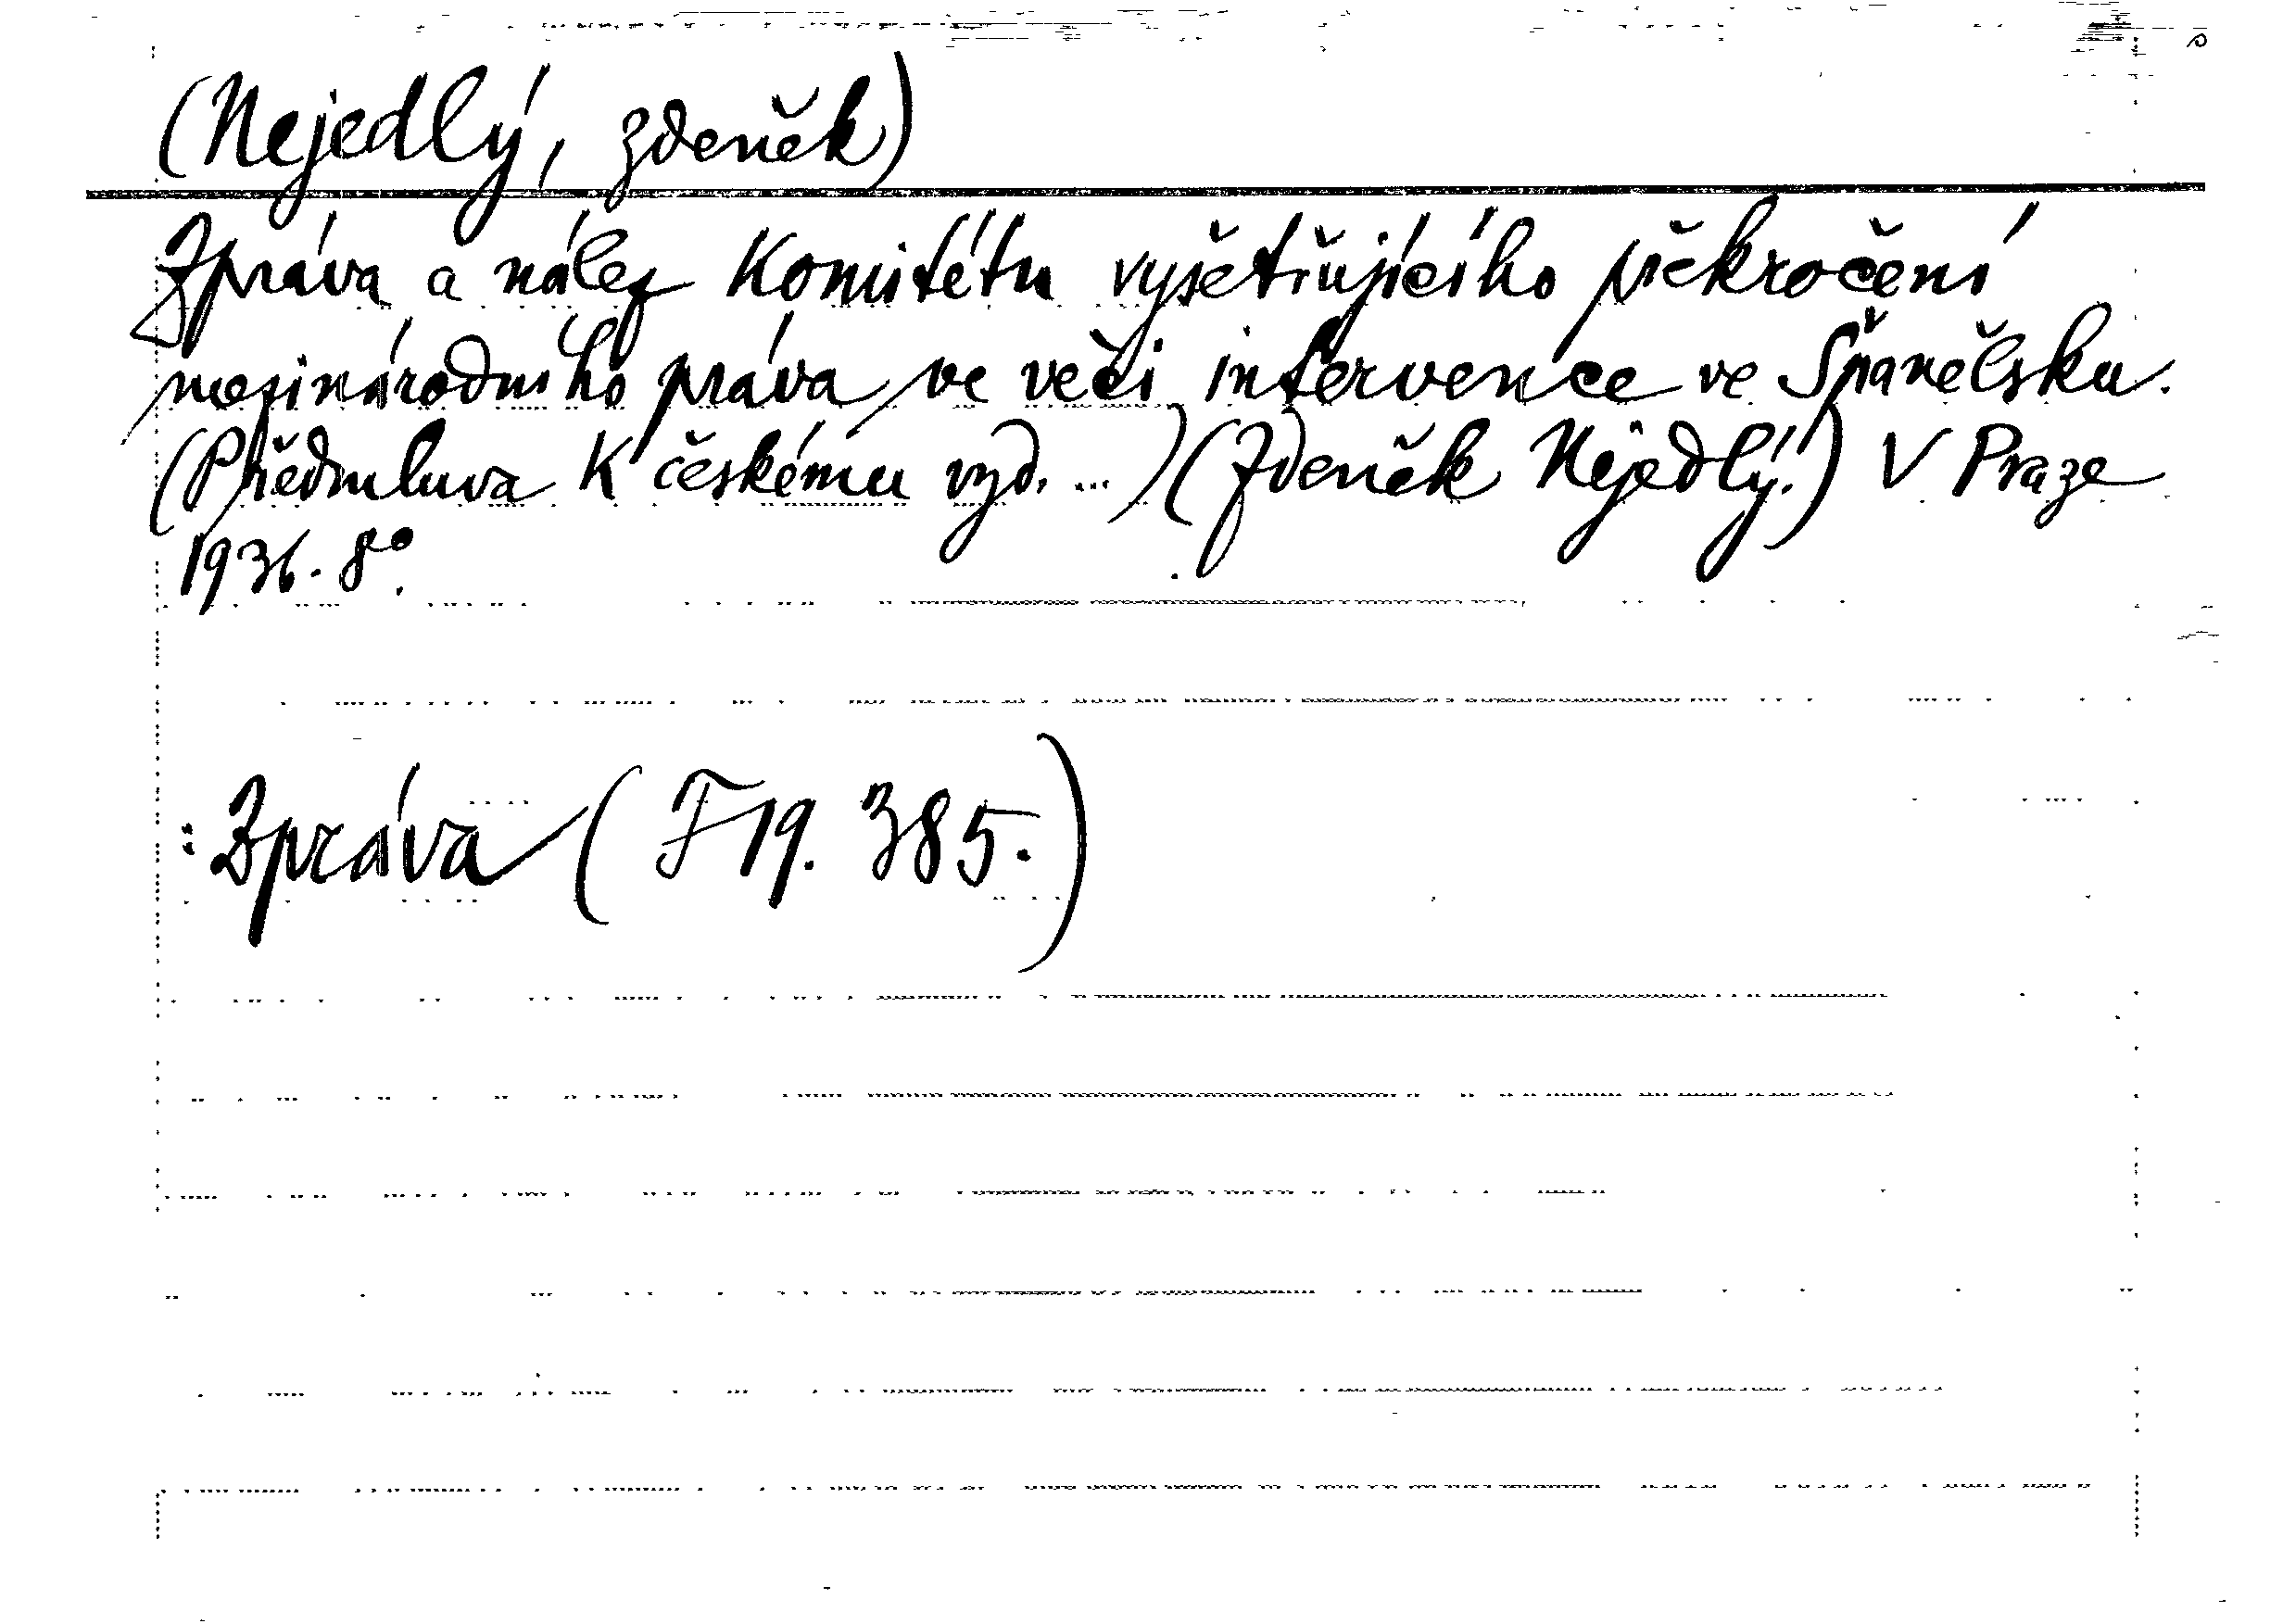 (Nejedlý, Zdeněk)
Zpráva a nález Komitétu vyšetřujícího překročení
mezinárodního práva ve věci intervence ve Španělsku.
(Předmluva k českému vyd. ...) (Zdeněk Nejedlý.) V Praze
1936. 8°.
: Zpráva (F 19. 385.)